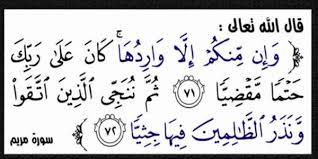 قال الله تعالى :
وَإِن مِّنكُمْ إِلَّا وَارِدُهَا ۚ كَانَ عَلَىٰ رَبِّكَ
حَتْمًا مَّقْضِيًّا ٧١ ثُمَّ نُنَجِّي الَّذِينَ اتَّقَوا
وَّنَذَرُ الظَّالِمِينَ فِيهَا جِثِيًّا ٧٢ سورة مريم